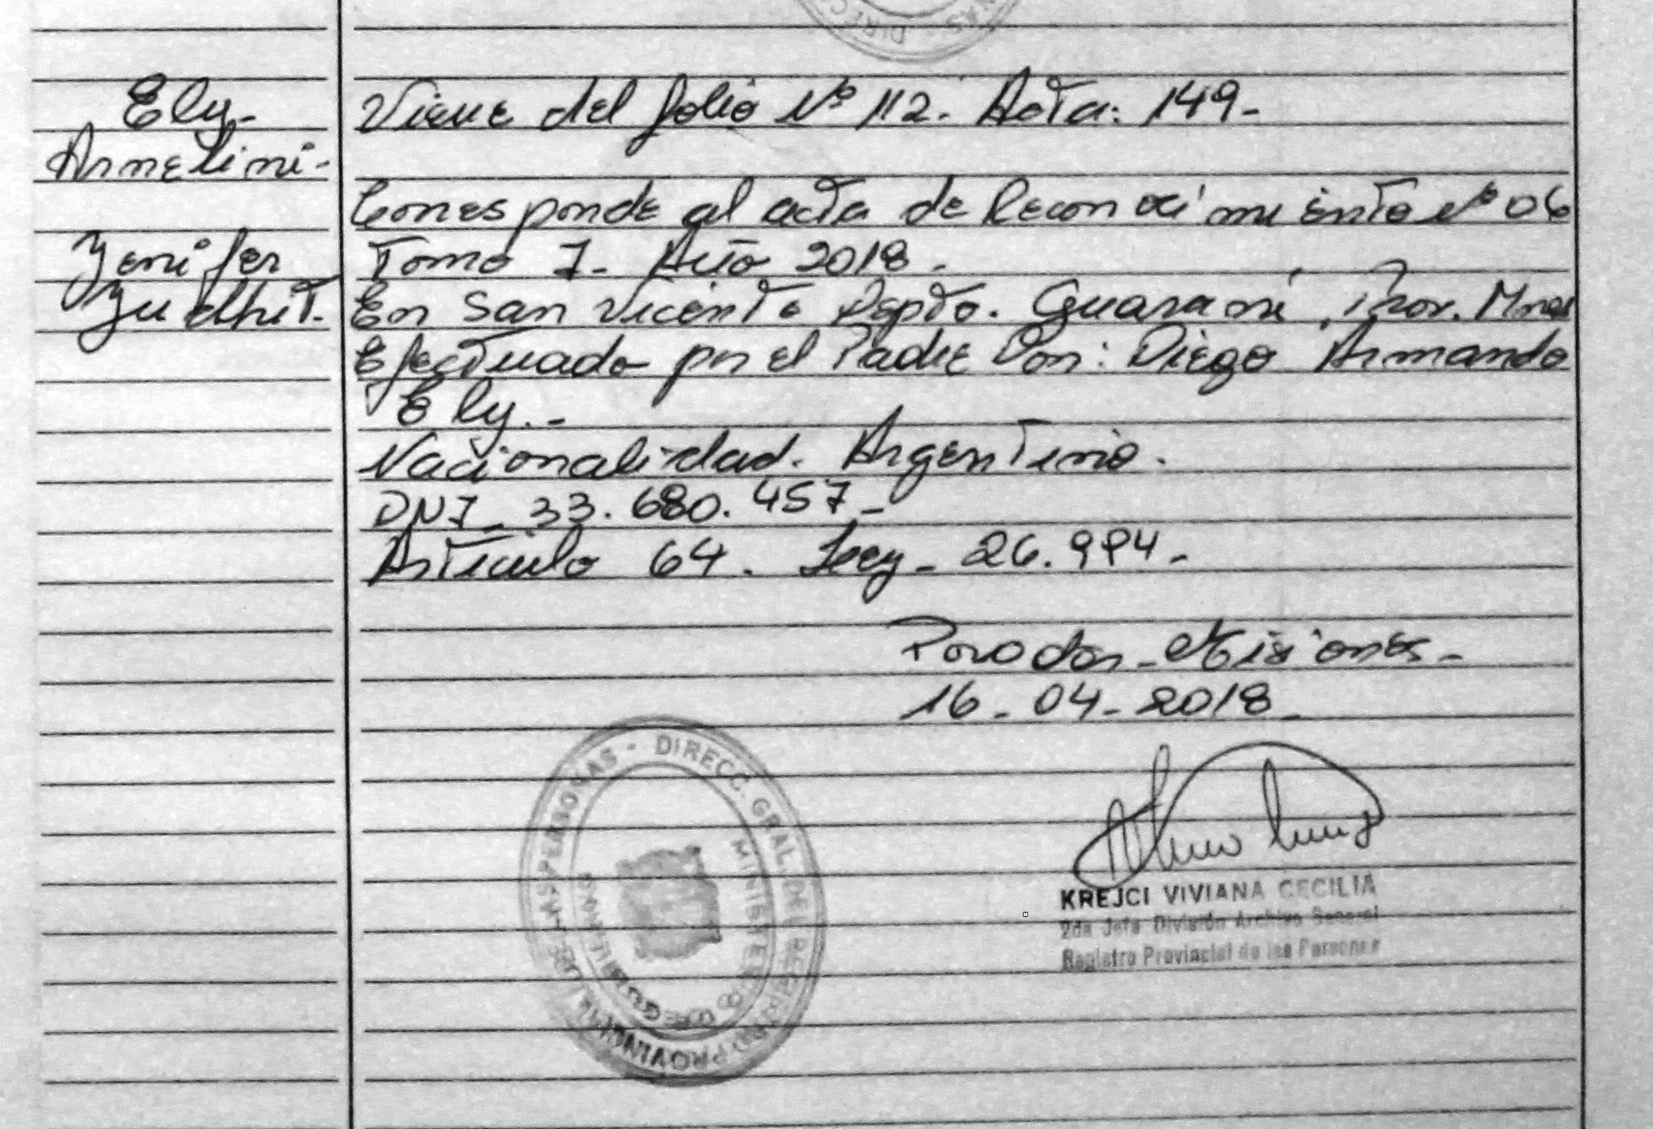 Ely-
Armelini-
Yenifer
Yudhit.
Viene del folio Nº 112. Acta: 149-
Corresponde al acta de Reconocimiento Nº 06
Tomo I- Año 2018-
En San Vicente Depto. Guaraní, Prov. Mnes
Efectuado por el Padre Don: Diego Armando
Ely.-
Nacionalidad. Argentino.
DNI- 33.680.457-
Artículo 64. Ley- 26.994-
Posadas-Misiones-
16-04-2018-
KREJCI VIVIANA CECILIA
2da Jefa División Archivo General
Registro Provincial de las Personas
DIRECC. GRAL. DEL REGISTRO PROVINCIAL DE LAS PERSONAS -
MINISTERIO DE GOBIERNO